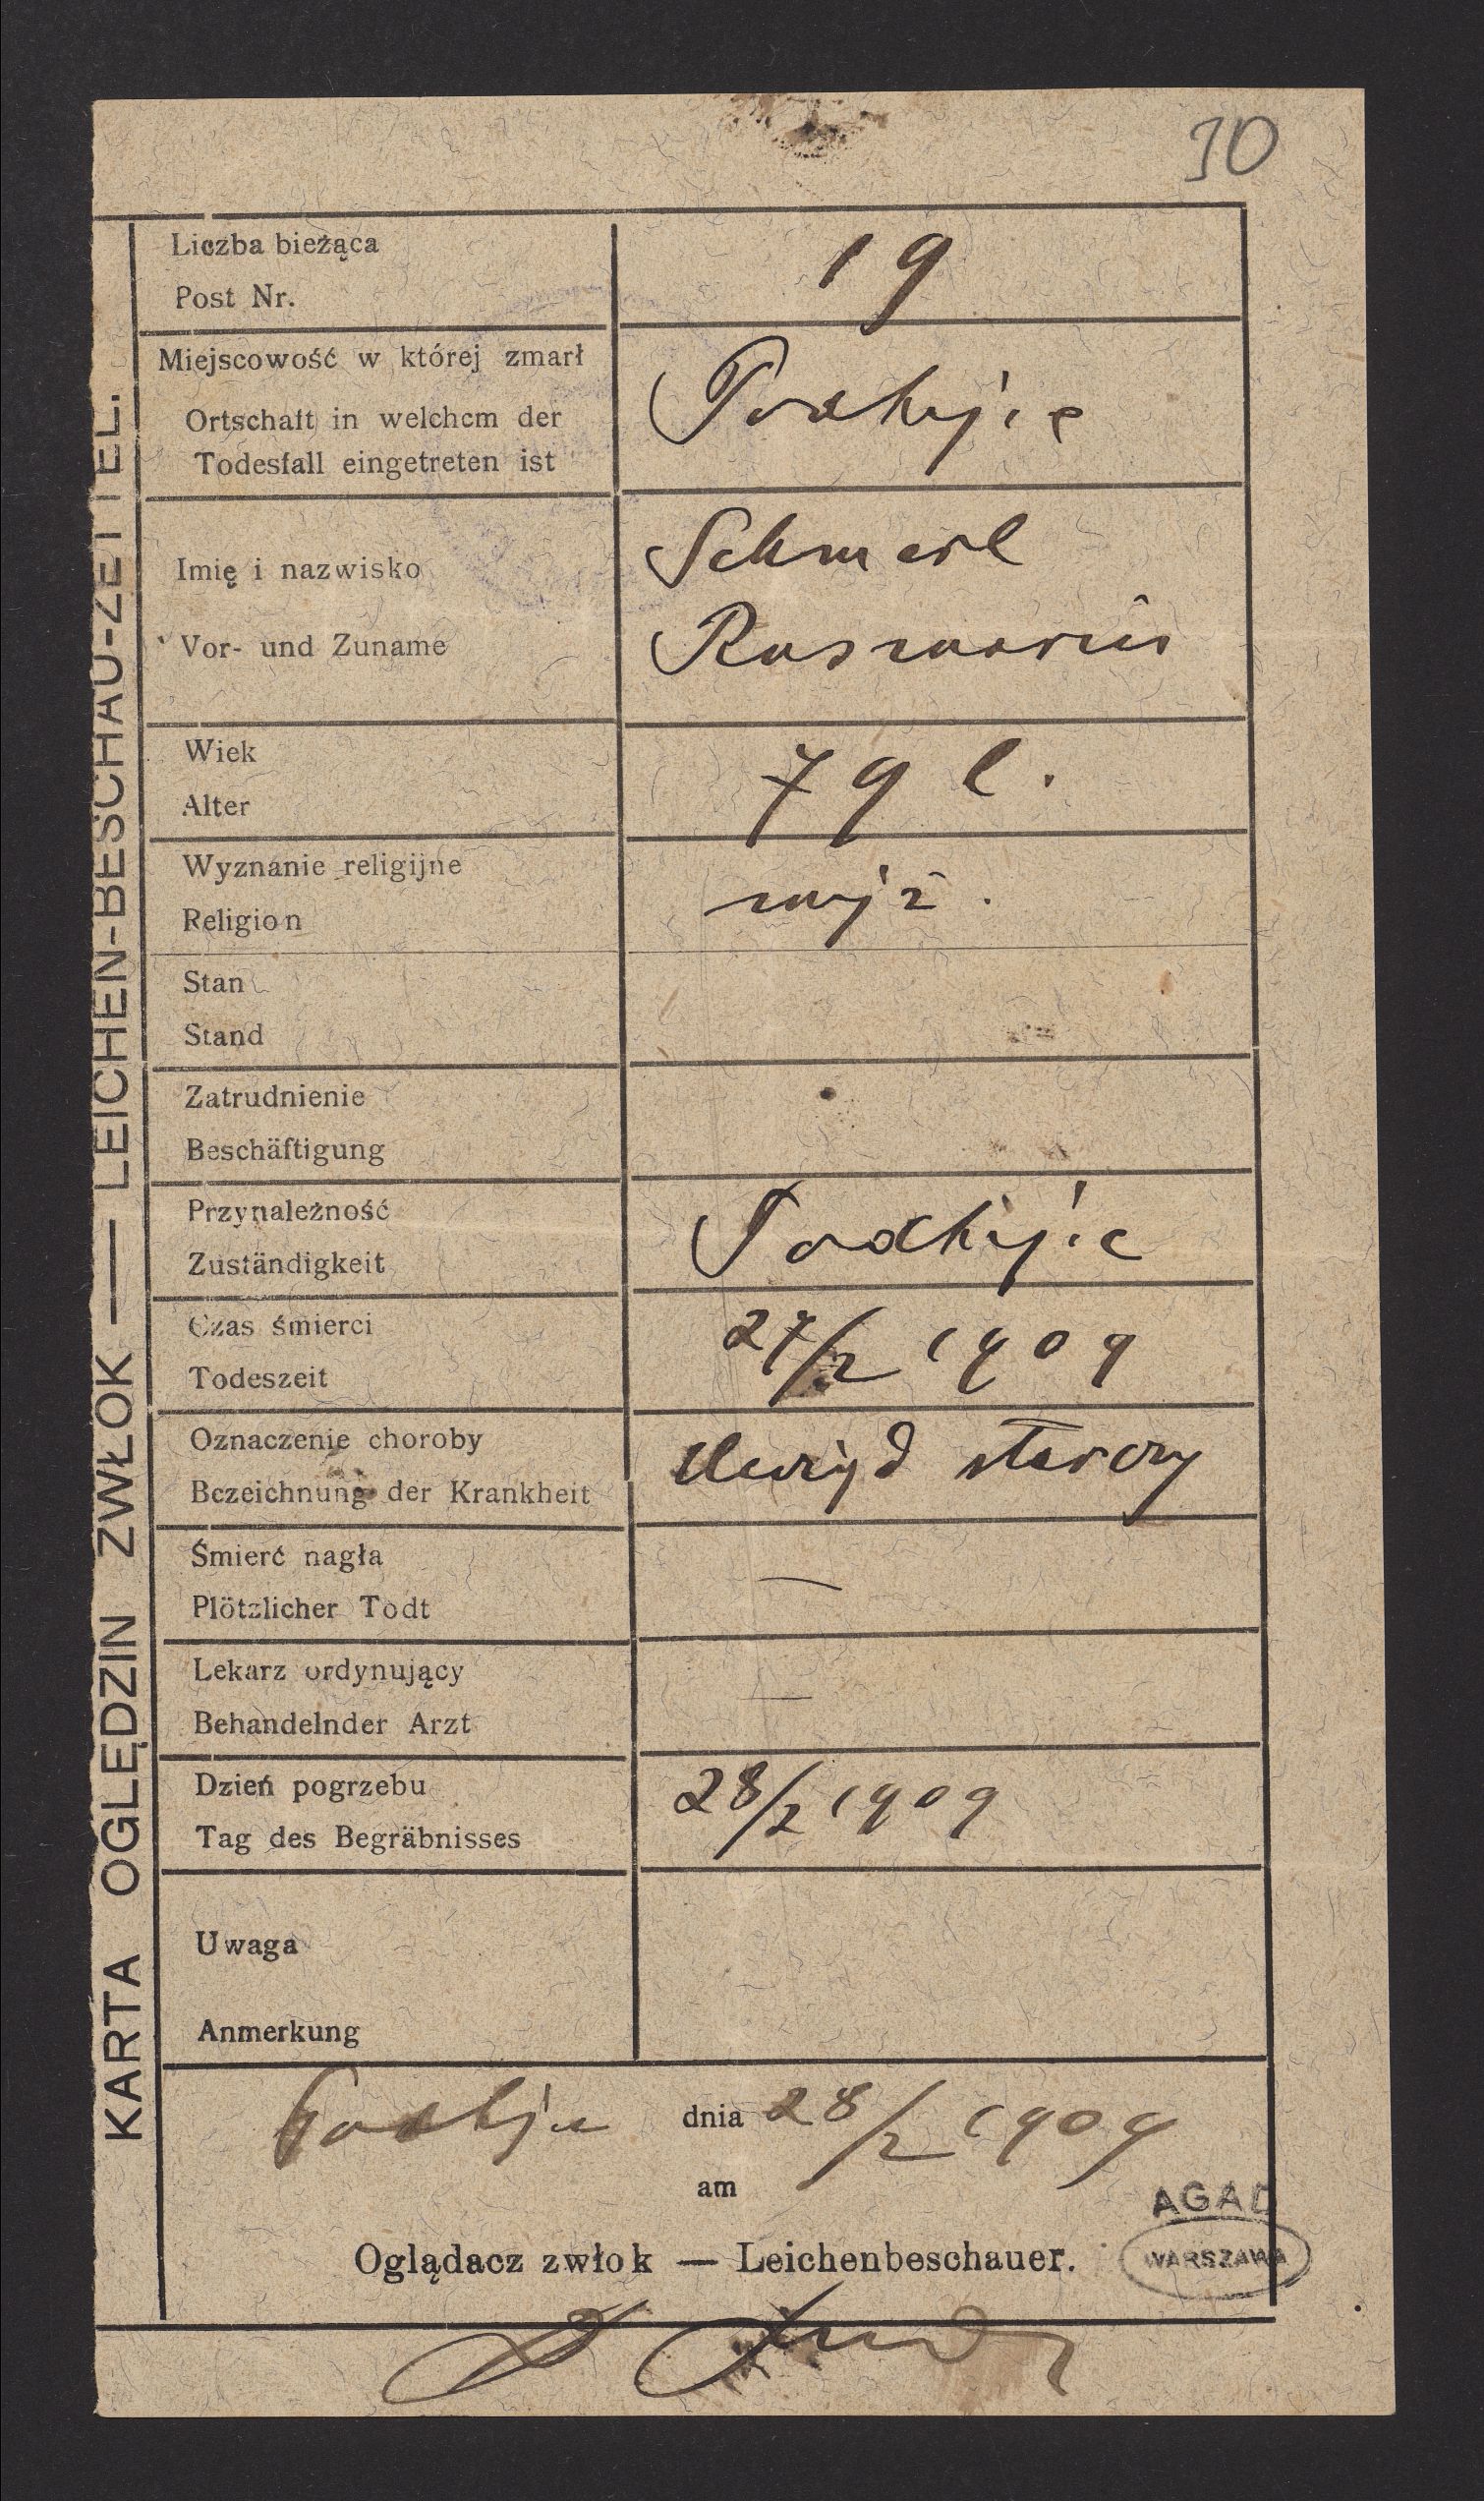 10
KARTA OGLĘDZIN ZWŁOK — LEICHEN-BESCHAU-ZETTEL.
Liczba bieżąca
Post Nr.
19
Miejscowość w której zmarł
Ortschaft in welchem der
Todesfall eingetreten ist
Podhajce
Imię i nazwisko
Vor- und Zuname
Schmerl
Rosmarin
Wiek
Alter
79 l.
Wyznanie religijne
Religion
mojż.
Stan
Stand
Zatrudnienie
Beschäftigung
Przynależność
Zuständigkeit
Podhajce
Czas śmierci
Todeszeit
27/2 1909
Oznaczenie choroby
Bezeichnung der Krankheit
Uwiąd starczy
Śmierć nagła
Plötzlicher Todt
—
Lekarz ordynujący
Behandelnder Arzt
—
Dzień pogrzebu
Tag des Begräbnisses
28/2 1909
Uwaga
Anmerkung
Podhajce dnia 28/2 1909
am
Oglądacz zwłok — Leichenbeschauer.
AGAD
WARSZAWA